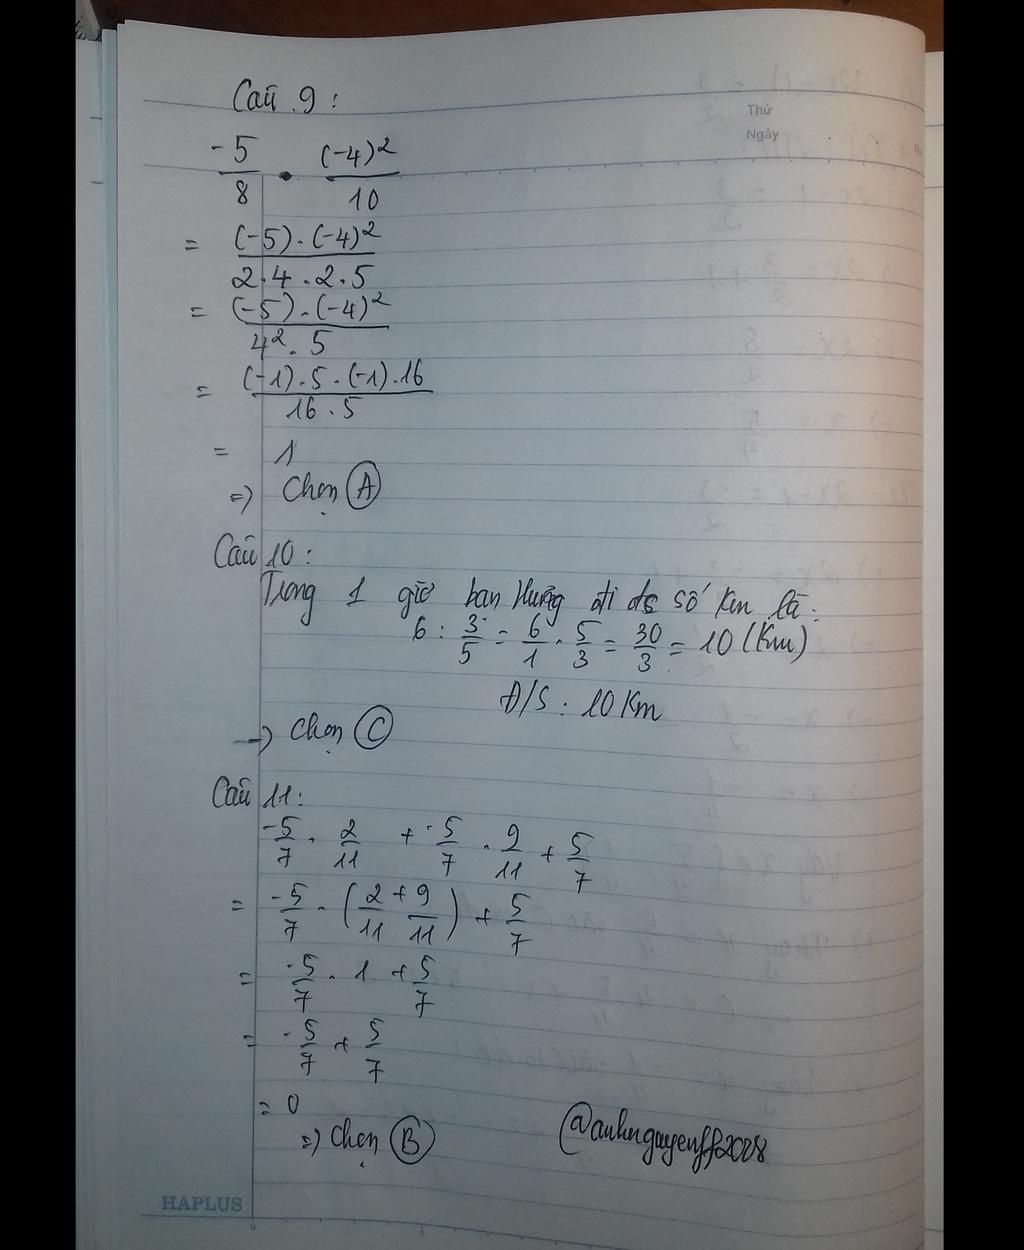 Câu 9:
Thứ
Ngày
-5/8 . (-4)²/10
= (-5).(-4)²/2.4.2.5
= (-5).(-4)²/4².5
= (-1).5.(-1).16/16.5
= 1
=> Chọn A
Câu 10:
Trong 1 giờ bạn Hưng đi đc số Km là:
6 : 3/5 = 6/1 . 5/3 = 30/3 = 10 (Km)
Đ/S: 10 Km
-> Chọn C
Câu 11:
-5/7 . 2/11 + -5/7 . 9/11 + 5/7
= -5/7 . (2/11 + 9/11) + 5/7
= -5/7 . 1 + 5/7
= -5/7 + 5/7
= 0
=> Chọn B
HAPLUS